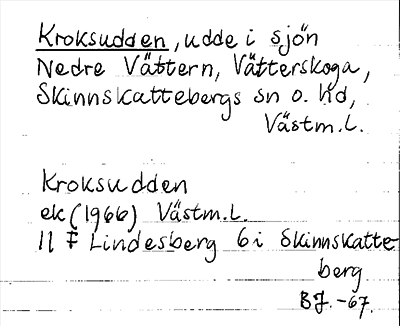 Kroksudden, udde i sjön
Nedre Vättern, Vätterskoga,
Skinnskattebergs sn o. hd,
Västm.l.
Kroksudden
ek (1966) Västm.l.
11 F Lindesberg 6i Skinnskatte-
berg
BJ. -67.